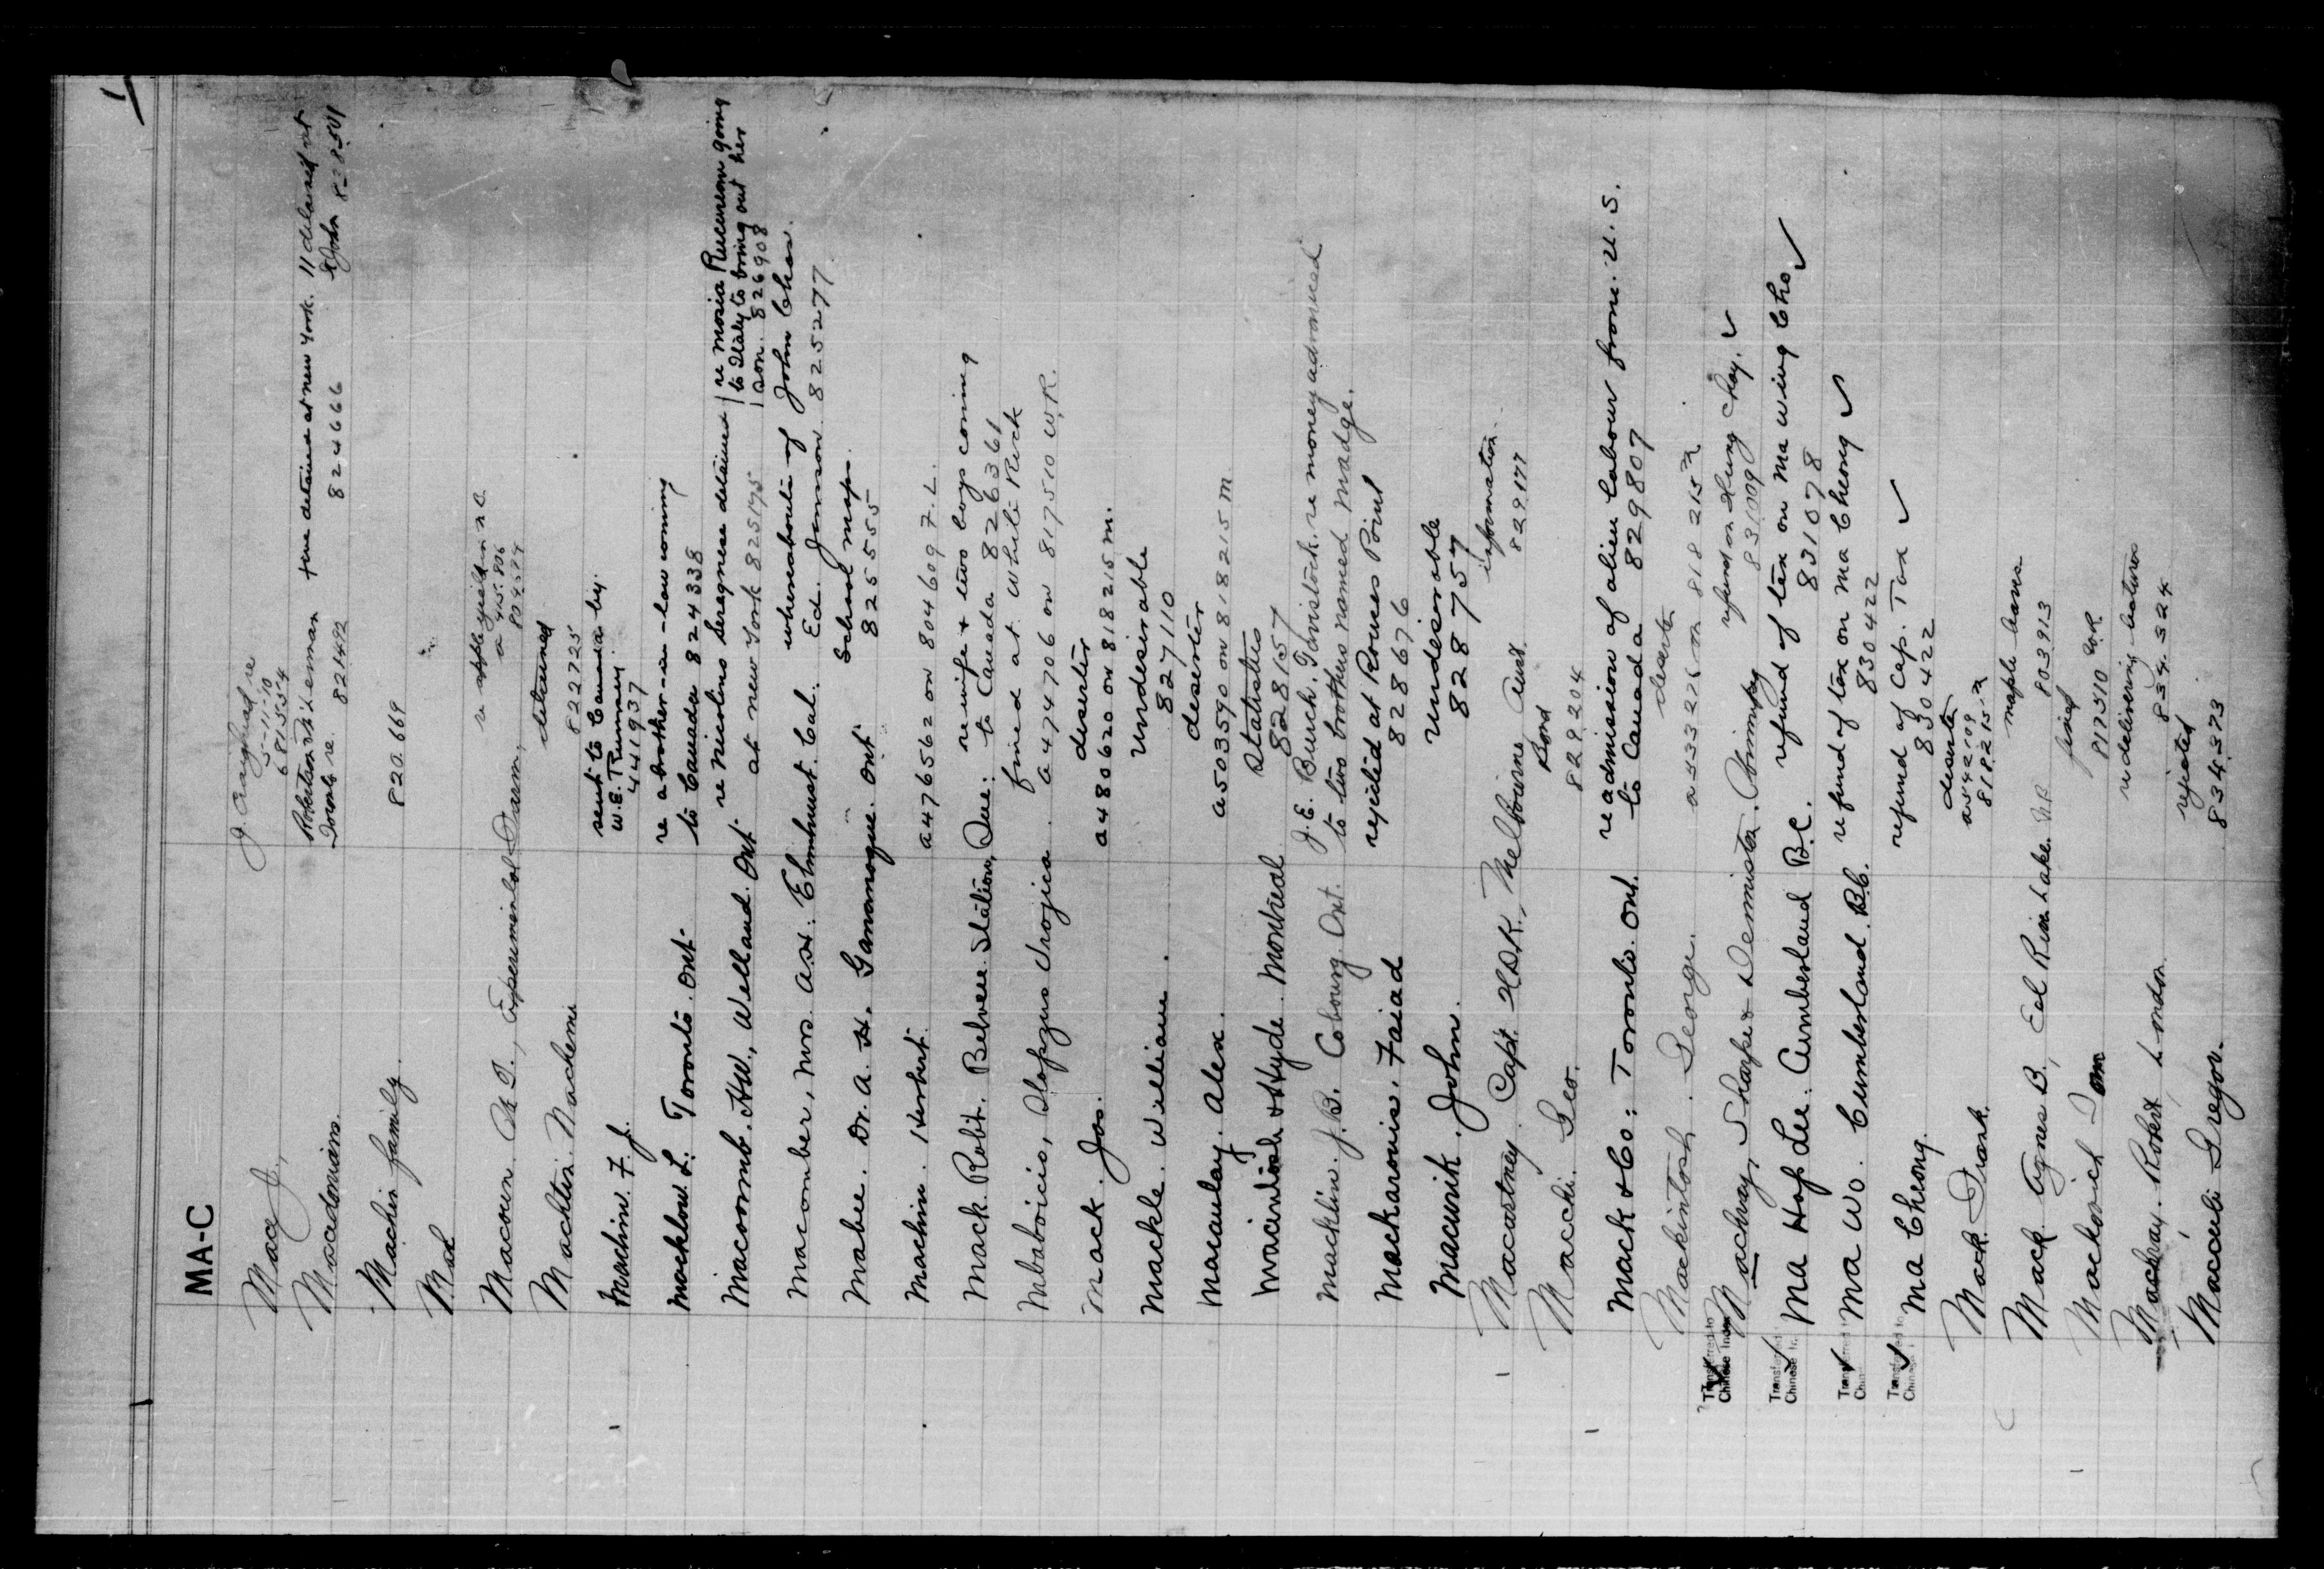 MA-C
1
Mace J.,
J. re
5-11-10
681554
Macedonians.
Robertson
re. 821492
detained at New York.
824666
11 detained at
St John 828501
Machin family.
820.669
Mac
Macoun. , Experimental Farm,
re
a 415.806
Machtin.
detained
822725
Machin. F. J.
sent to Canada by.
W.E. 
441937
Macklow. L. Toronto. Ont.
re a brother-in-law coming
to Canada 824338
Macomb. HW., Welland. Ont
re Nicolino detained
at New York 825175
re Maria going
to Italy to bring out her
son. 826908
Macomber, Mrs. A.H. Elmhurst. Cal.
whereabouts of John Chas.
Ed. Jamson 825277
Mabee. Dr. A. H. Gananoque. Ont
School maps.
825555
Machin. Herbert.
a476562 on 804609 F.L.
Mack. Robt. Belvere Station, Que:
re wife & two boys coming
to Canada 826361
fined at White Rock
a 474706 on 817510 W.R.
Mack. Jos.
deserter
a480620 on 818215 M.
Mackle. William.
Undesirable
827110
Macaulay. Alex.
deserter
a503590 on 818215 M
& Hyde. Montreal
Statistics
828157
Macklin. J.B. Cobourg. Ont.
J.E. Burch, Tavistock. re money advanced
to two brothers named Madge.
Mackaronis. Faiad
rejected at Rouses Point
828676
Macurik. John.
Undesirable
828757
Macartney. Capt. H.D.K. Melbourne Aust.
information.
829177
Macchi. Geo.
Bond
829204
Mack & Co: Toronto. Ont.
re admission of alien labour from. U.S.
to Canada 829807
Mackintosh. George.
deserter
a533226 on 818215 M
Transferred to
Chinese Index
Machray, Sharpe & Dennistoun.
refund on Hung Chay.
831009
Ma Hop Lee. Cumberland B.C.
refund of tax on Ma Wing Cho
831078
Ma Wo. Cumberland. B.C.
refund of tax on Ma Cheong
830422
Ma Cheong.
refund of Cap. Tax
830422
Mack. Frank.
deserter
a542109
818215 M
Mack. Agnes B,
maple leaves
803913
Tom
fined
817510 W.R
Machray. Robert, London.
re delivering lectures
834.324
Macculi Gregor.
rejected
834.373